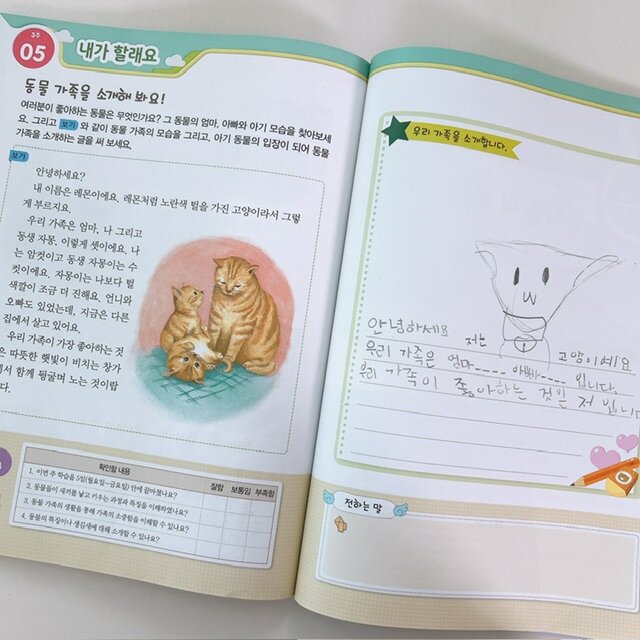 3주
05
내가 할래요
동물 가족을 소개해 봐요!
여러분이 좋아하는 동물은 무엇인가요? 그 동물의 엄마, 아빠와 아기 모습을 찾아보세
요. 그리고 보기 와 같이 동물 가족의 모습을 그리고, 아기 동물의 입장이 되어 동물
가족을 소개하는 글을 써 보세요.
보기
안녕하세요?
내 이름은 레몬이에요. 레몬처럼 노란색 털을 가진 고양이라서 그렇
게 부르지요.
우리 가족은 엄마, 나 그리고
동생 자몽, 이렇게 셋이에요. 나
는 암컷이고 동생 자몽이는 수
컷이에요. 자몽이는 나보다 털
색깔이 조금 더 진해요. 언니와
오빠도 있었는데, 지금은 다른
집에서 살고 있어요.
우리 가족이 가장 좋아하는 것
은 따뜻한 햇빛이 비치는 창가
에서 함께 뒹굴며 노는 것이랍
니다.
확인할 내용 잘함 보통임 부족함
1. 이번 주 학습을 5일(월요일~금요일) 안에 끝마쳤나요?
2. 동물들이 새끼를 낳고 키우는 과정과 특징을 이해하였나요?
3. 동물 가족의 생활을 통해 가족의 소중함을 이해할 수 있나요?
4. 동물의 특징이나 생김새에 대해 소개할 수 있나요?
우리 가족을 소개합니다.
안녕하세요 저는 고양이예요
우리 가족은 엄마---- 아빠---- 입니다.
우리 가족이 좋아하는 것은 저 입니다
전하는 말